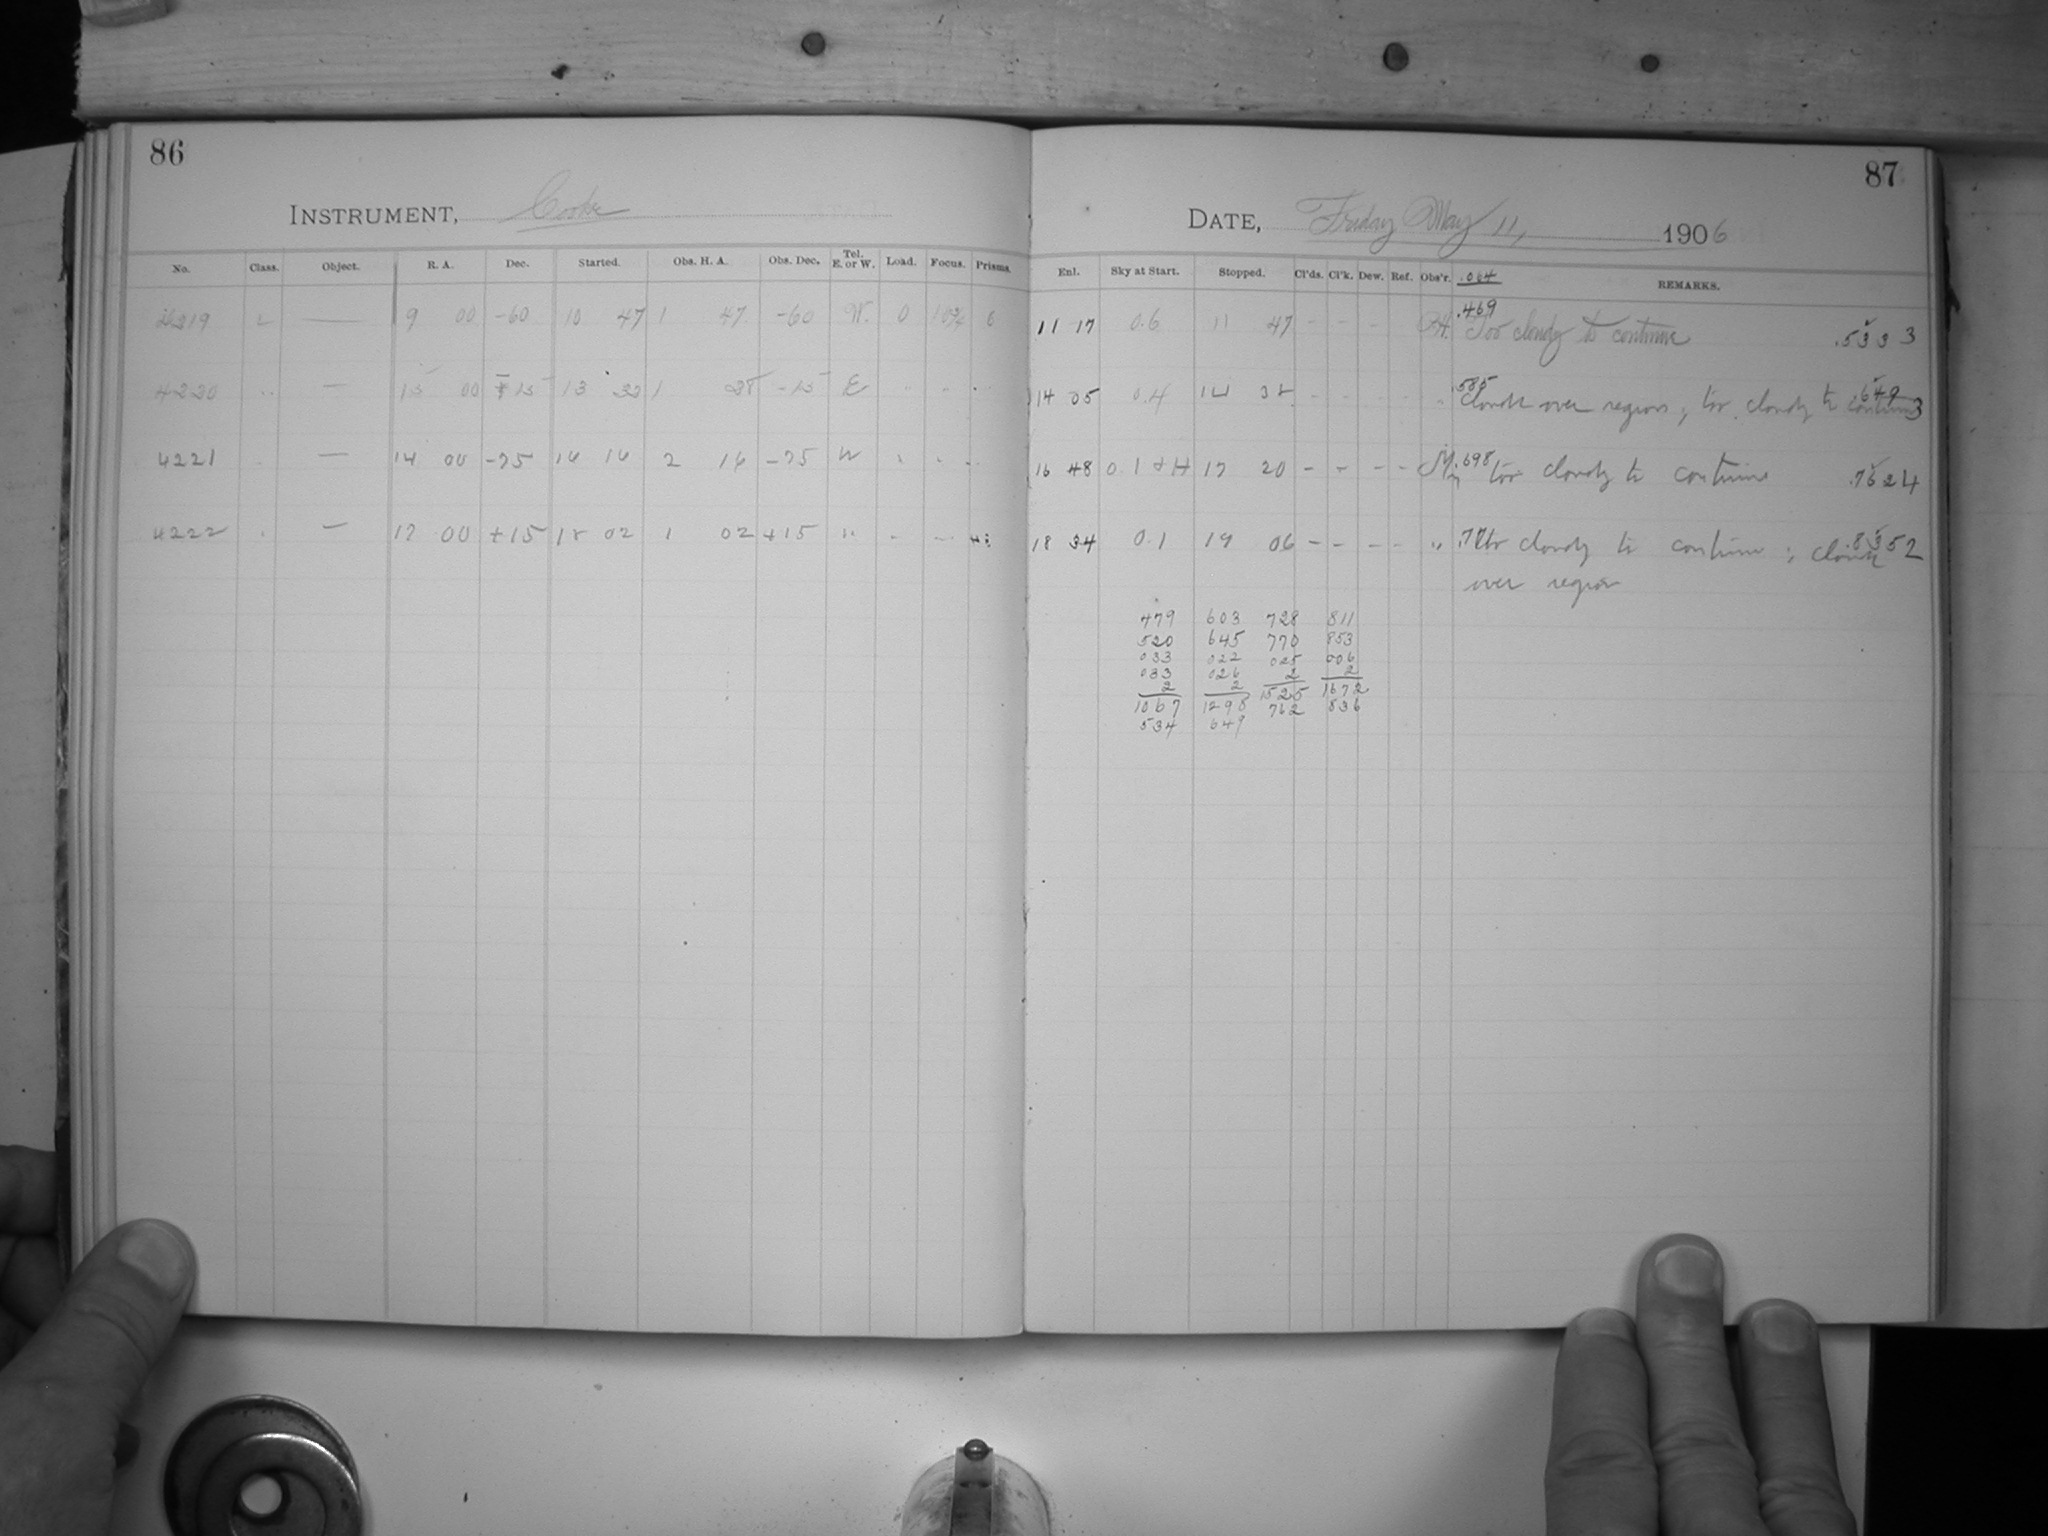 86
INSTRUMENT, Cooke
No. Class. Object. R. A. Dec. Started. Obs. H. A. Obs. Dec. Tel. E. or W. Load. Focus. Prisms.
4219 L — 9 00 -60 10 47 1 47 -60 W. 0 0
4220 " — 15 00 13 33 1 28 -15 E
4221 — 14 00 -75 16 16 2 16 -75 W
4222 — 17 00 +15 18 02 1 02 +15 "
87
DATE, Friday May 11, 1906
Enl. Sky at Start. Stopped. Cl'ds. Cl'k. Dew. Ref. Obs'r. .064 REMARKS.
11 17 0.6 11 47 - - - .469 Too cloudy to continue .5333
14 05 0.4 14 32 - - - - " .585 clouds over region; too cloudy to continue .6493
16 48 0.1 + H 17 20 - - - - .698 too cloudy to continue .7624
18 34 0.1 19 06 - - - - " too cloudy to continue; clouds .8352
over region
479 603 728 811
520 645 770 853
033 022 025 006
033 026 2 2
2 2 1525 1672
1067 1298 762 836
534 649